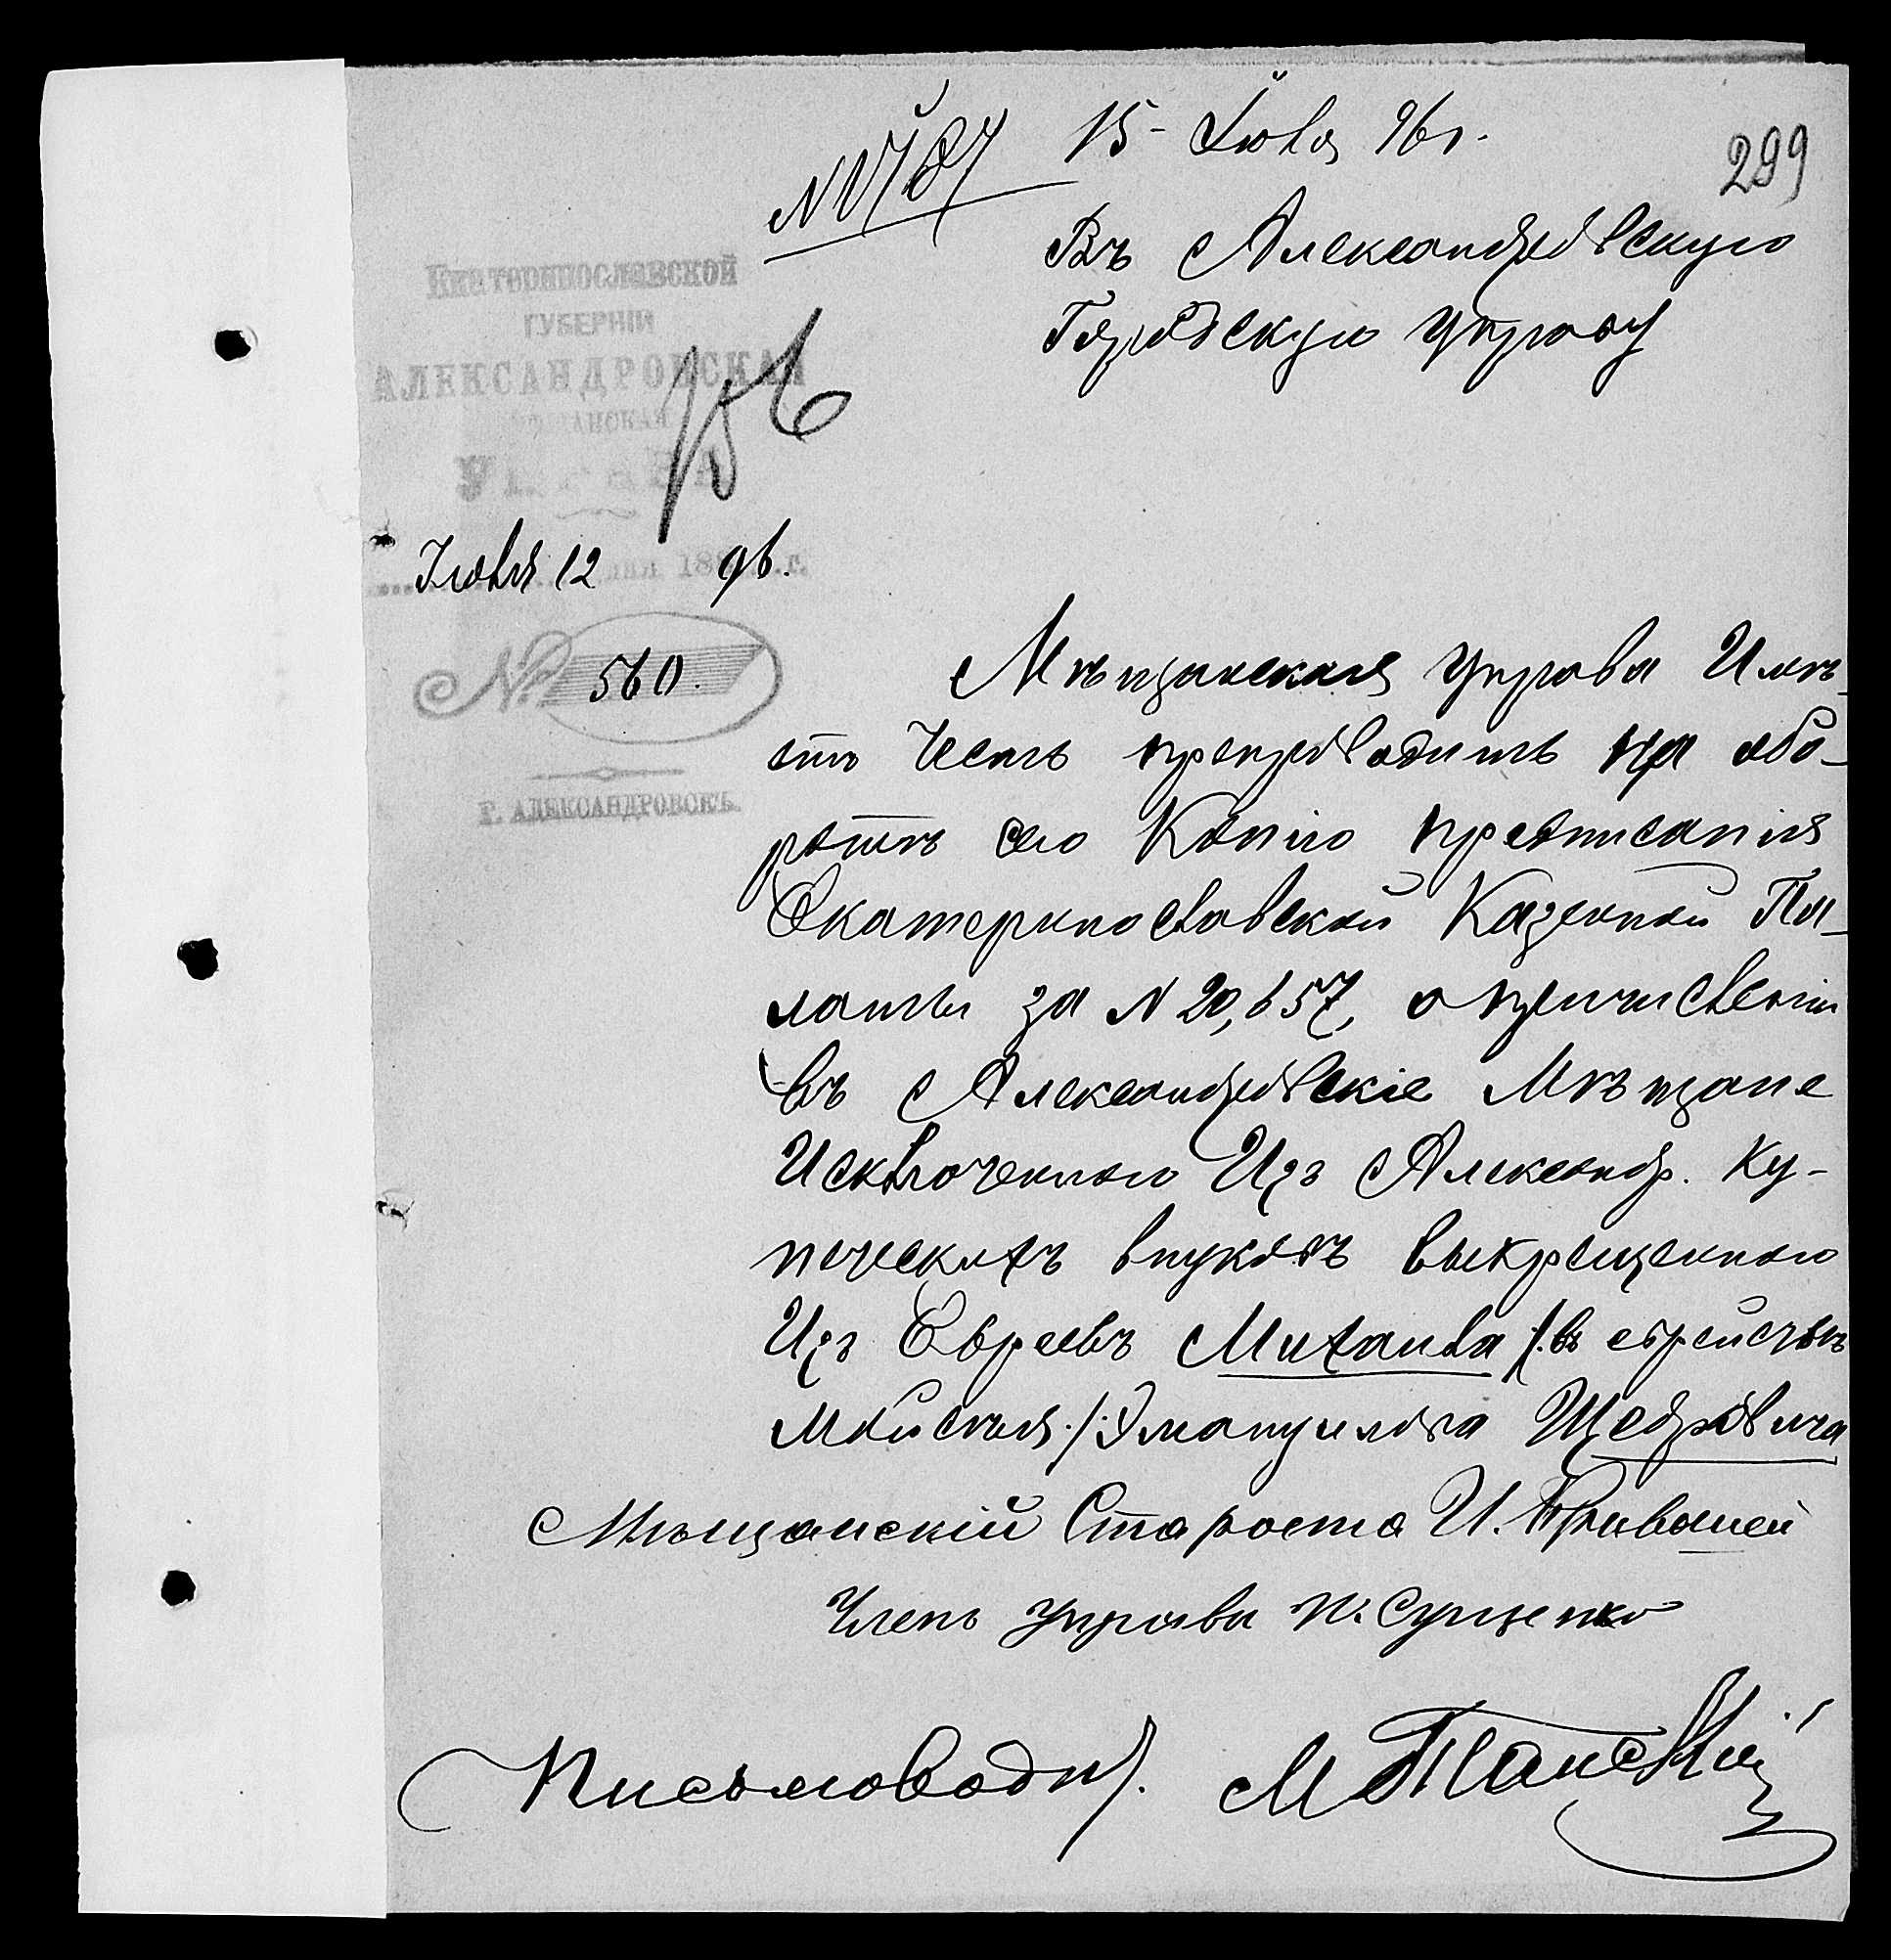 15 Іюля 96 г.
299
Въ Александровскую
Городскую Управу
Екатеринославской
ГУБЕРНІИ
АЛЕКСАНДРОВСКАЯ
МѢЩАНСКАЯ
УПРАВА
Іюля 12 дня 1896 г.
№ 560.
Г. АЛЕКСАНДРОВСКЪ.
Мѣщанская Управа Имѣ-
етъ Честь препроводить на обо-
ротѣ сего Копію предписанія
Екатеринославской Казенной Па-
латы за N 20,657, о причисленіи
въ Александровскіе Мѣщане
Исключеннаго Изъ Александр. Ку-
печескихъ внуковъ выкрещеннаго
Изъ Евреевъ Михаила /:въ еврействѣ
Мойсея:/ Эмануилова Щедровича
Мѣщанскій Староста И.
Членъ Управы П. Сущенко
Письмоводит. М